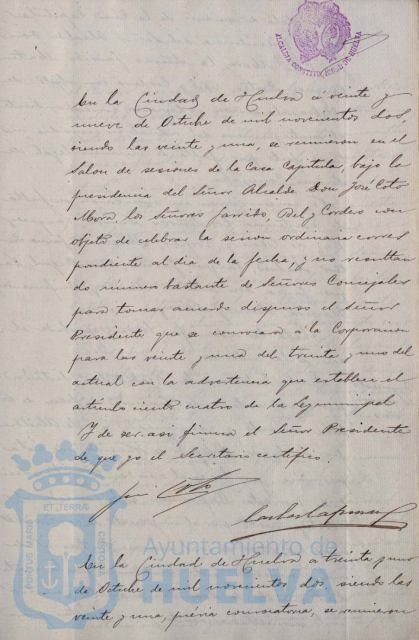 ALCALDIA CONSTITUCIONAL DE HUELVA
En la Ciudad de Huelva a veinte y
nueve de Octubre de mil novecientos dos,
siendo las veinte y una, se reunieron en el
Salon de sesiones de la Casa Capitular, bajo la
presidencia del Señor Alcalde Don José Coto
Mora, los Señores Garrido, Bel y Cordero con
objeto de celebrar la sesion ordinaria corres
pondiente al dia de la fecha, y no resultan
do número bastante de Señores Concejales
para tomar acuerdo dispuso el señor
Presidente que se convocara á la Corporacion
para las veinte y una del treinta y uno del
actual con la advertencia que establece el
artículo ciento cuatro de la Ley municipal
Y de ser así firma el Señor Presidente
de que yo el Secretario certifico.
José Coto
En la Ciudad de Huelva a treinta y uno
de Octubre de mil novecientos dos, siendo las
veinte y una, prévia convocatoria, se reunieron
PORTUS MARIS
ET TERRA
CUSTODIA
Ayuntamiento de
HUELVA